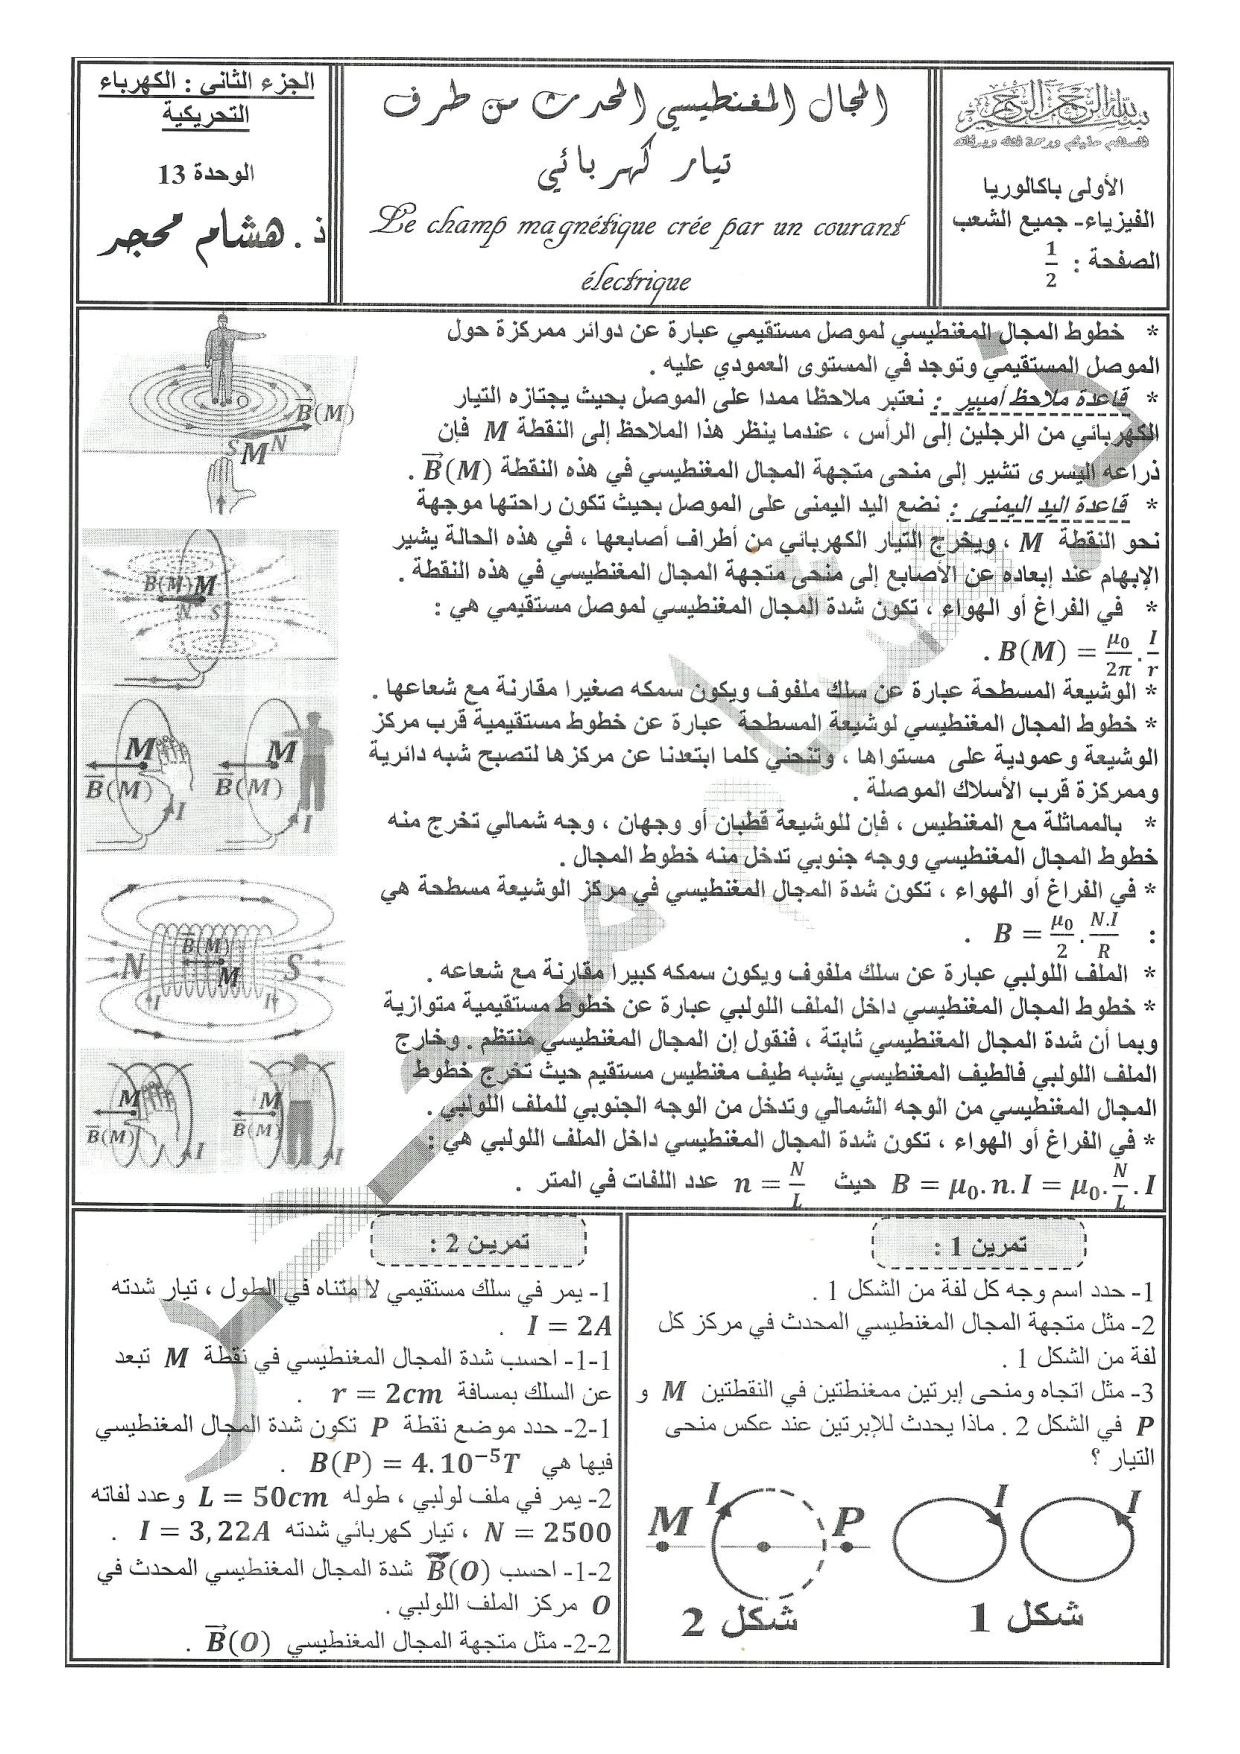 الأولى باكالوريا
الفيزياء- جميع الشعب
الصفحة : 1/2
المجال المغنطيسي المحدث من طرف
تيار كهربائي
Le champ magnétique crée par un courant
électrique
الجزء الثاني : الكهرباء
التحريكية
الوحدة 13
ذ. هشام محجر
* خطوط المجال المغنطيسي لموصل مستقيمي عبارة عن دوائر ممركزة حول
الموصل المستقيمي وتوجد في المستوى العمودي عليه .
* قاعدة ملاحظ أمبير : نعتبر ملاحظا ممدا على الموصل بحيث يجتازه التيار
الكهربائي من الرجلين إلى الرأس ، عندما ينظر هذا الملاحظ إلى النقطة M فإن
ذراعه اليسرى تشير إلى منحى متجهة المجال المغنطيسي في هذه النقطة B⃗(M) .
* قاعدة اليد اليمنى : نضع اليد اليمنى على الموصل بحيث تكون راحتها موجهة
نحو النقطة M ، ويخرج التيار الكهربائي من أطراف أصابعها ، في هذه الحالة يشير
الإبهام عند إبعاده عن الأصابع إلى منحى متجهة المجال المغنطيسي في هذه النقطة .
* في الفراغ أو الهواء ، تكون شدة المجال المغنطيسي لموصل مستقيمي هي :
B(M) = μ₀/2π . I/r .
* الوشيعة المسطحة عبارة عن سلك ملفوف ويكون سمكه صغيرا مقارنة مع شعاعها .
* خطوط المجال المغنطيسي لوشيعة المسطحة عبارة عن خطوط مستقيمية قرب مركز
الوشيعة وعمودية على مستواها ، وتنحني كلما ابتعدنا عن مركزها لتصبح شبه دائرية
وممركزة قرب الأسلاك الموصلة .
* بالمماثلة مع المغنطيس ، فإن للوشيعة قطبان أو وجهان ، وجه شمالي تخرج منه
خطوط المجال المغنطيسي ووجه جنوبي تدخل منه خطوط المجال .
* في الفراغ أو الهواء ، تكون شدة المجال المغنطيسي في مركز الوشيعة مسطحة هي
: B = μ₀/2 . N.I/R .
* الملف اللولبي عبارة عن سلك ملفوف ويكون سمكه كبيرا مقارنة مع شعاعه .
* خطوط المجال المغنطيسي داخل الملف اللولبي عبارة عن خطوط مستقيمية متوازية
وبما أن شدة المجال المغنطيسي ثابتة ، فنقول إن المجال المغنطيسي منتظم . وخارج
الملف اللولبي فالطيف المغنطيسي يشبه طيف مغنطيس مستقيم حيث تخرج خطوط
المجال المغنطيسي من الوجه الشمالي وتدخل من الوجه الجنوبي للملف اللولبي .
* في الفراغ أو الهواء ، تكون شدة المجال المغنطيسي داخل الملف اللولبي هي :
B = μ₀.n.I = μ₀.N/L.I حيث n = N/L عدد اللفات في المتر .
O
B⃗(M)
S M N
B⃗(M) M
N S
M M
B⃗(M) B⃗(M)
I I
B⃗(M)
N M S
I I
M M
B⃗(M) B⃗(M)
I I
تمرين 1 :
1- حدد اسم وجه كل لفة من الشكل 1 .
2- مثل متجهة المجال المغنطيسي المحدث في مركز كل
لفة من الشكل 1 .
3- مثل اتجاه ومنحى إبرتين ممغنطتين في النقطتين M و
P في الشكل 2 . ماذا يحدث للإبرتين عند عكس منحى
التيار ؟
I I
شكل 1
M I P
شكل 2
تمرين 2 :
1- يمر في سلك مستقيمي لا متناه في الطول ، تيار شدته
I = 2A .
1-1- احسب شدة المجال المغنطيسي في نقطة M تبعد
عن السلك بمسافة r = 2cm .
2-1- حدد موضع نقطة P تكون شدة المجال المغنطيسي
فيها هي B(P) = 4.10⁻⁵T .
2- يمر في ملف لولبي ، طوله L = 50cm وعدد لفاته
N = 2500 ، تيار كهربائي شدته I = 3,22A .
1-2- احسب B⃗(O) شدة المجال المغنطيسي المحدث في
O مركز الملف اللولبي .
2-2- مثل متجهة المجال المغنطيسي B⃗(O) .